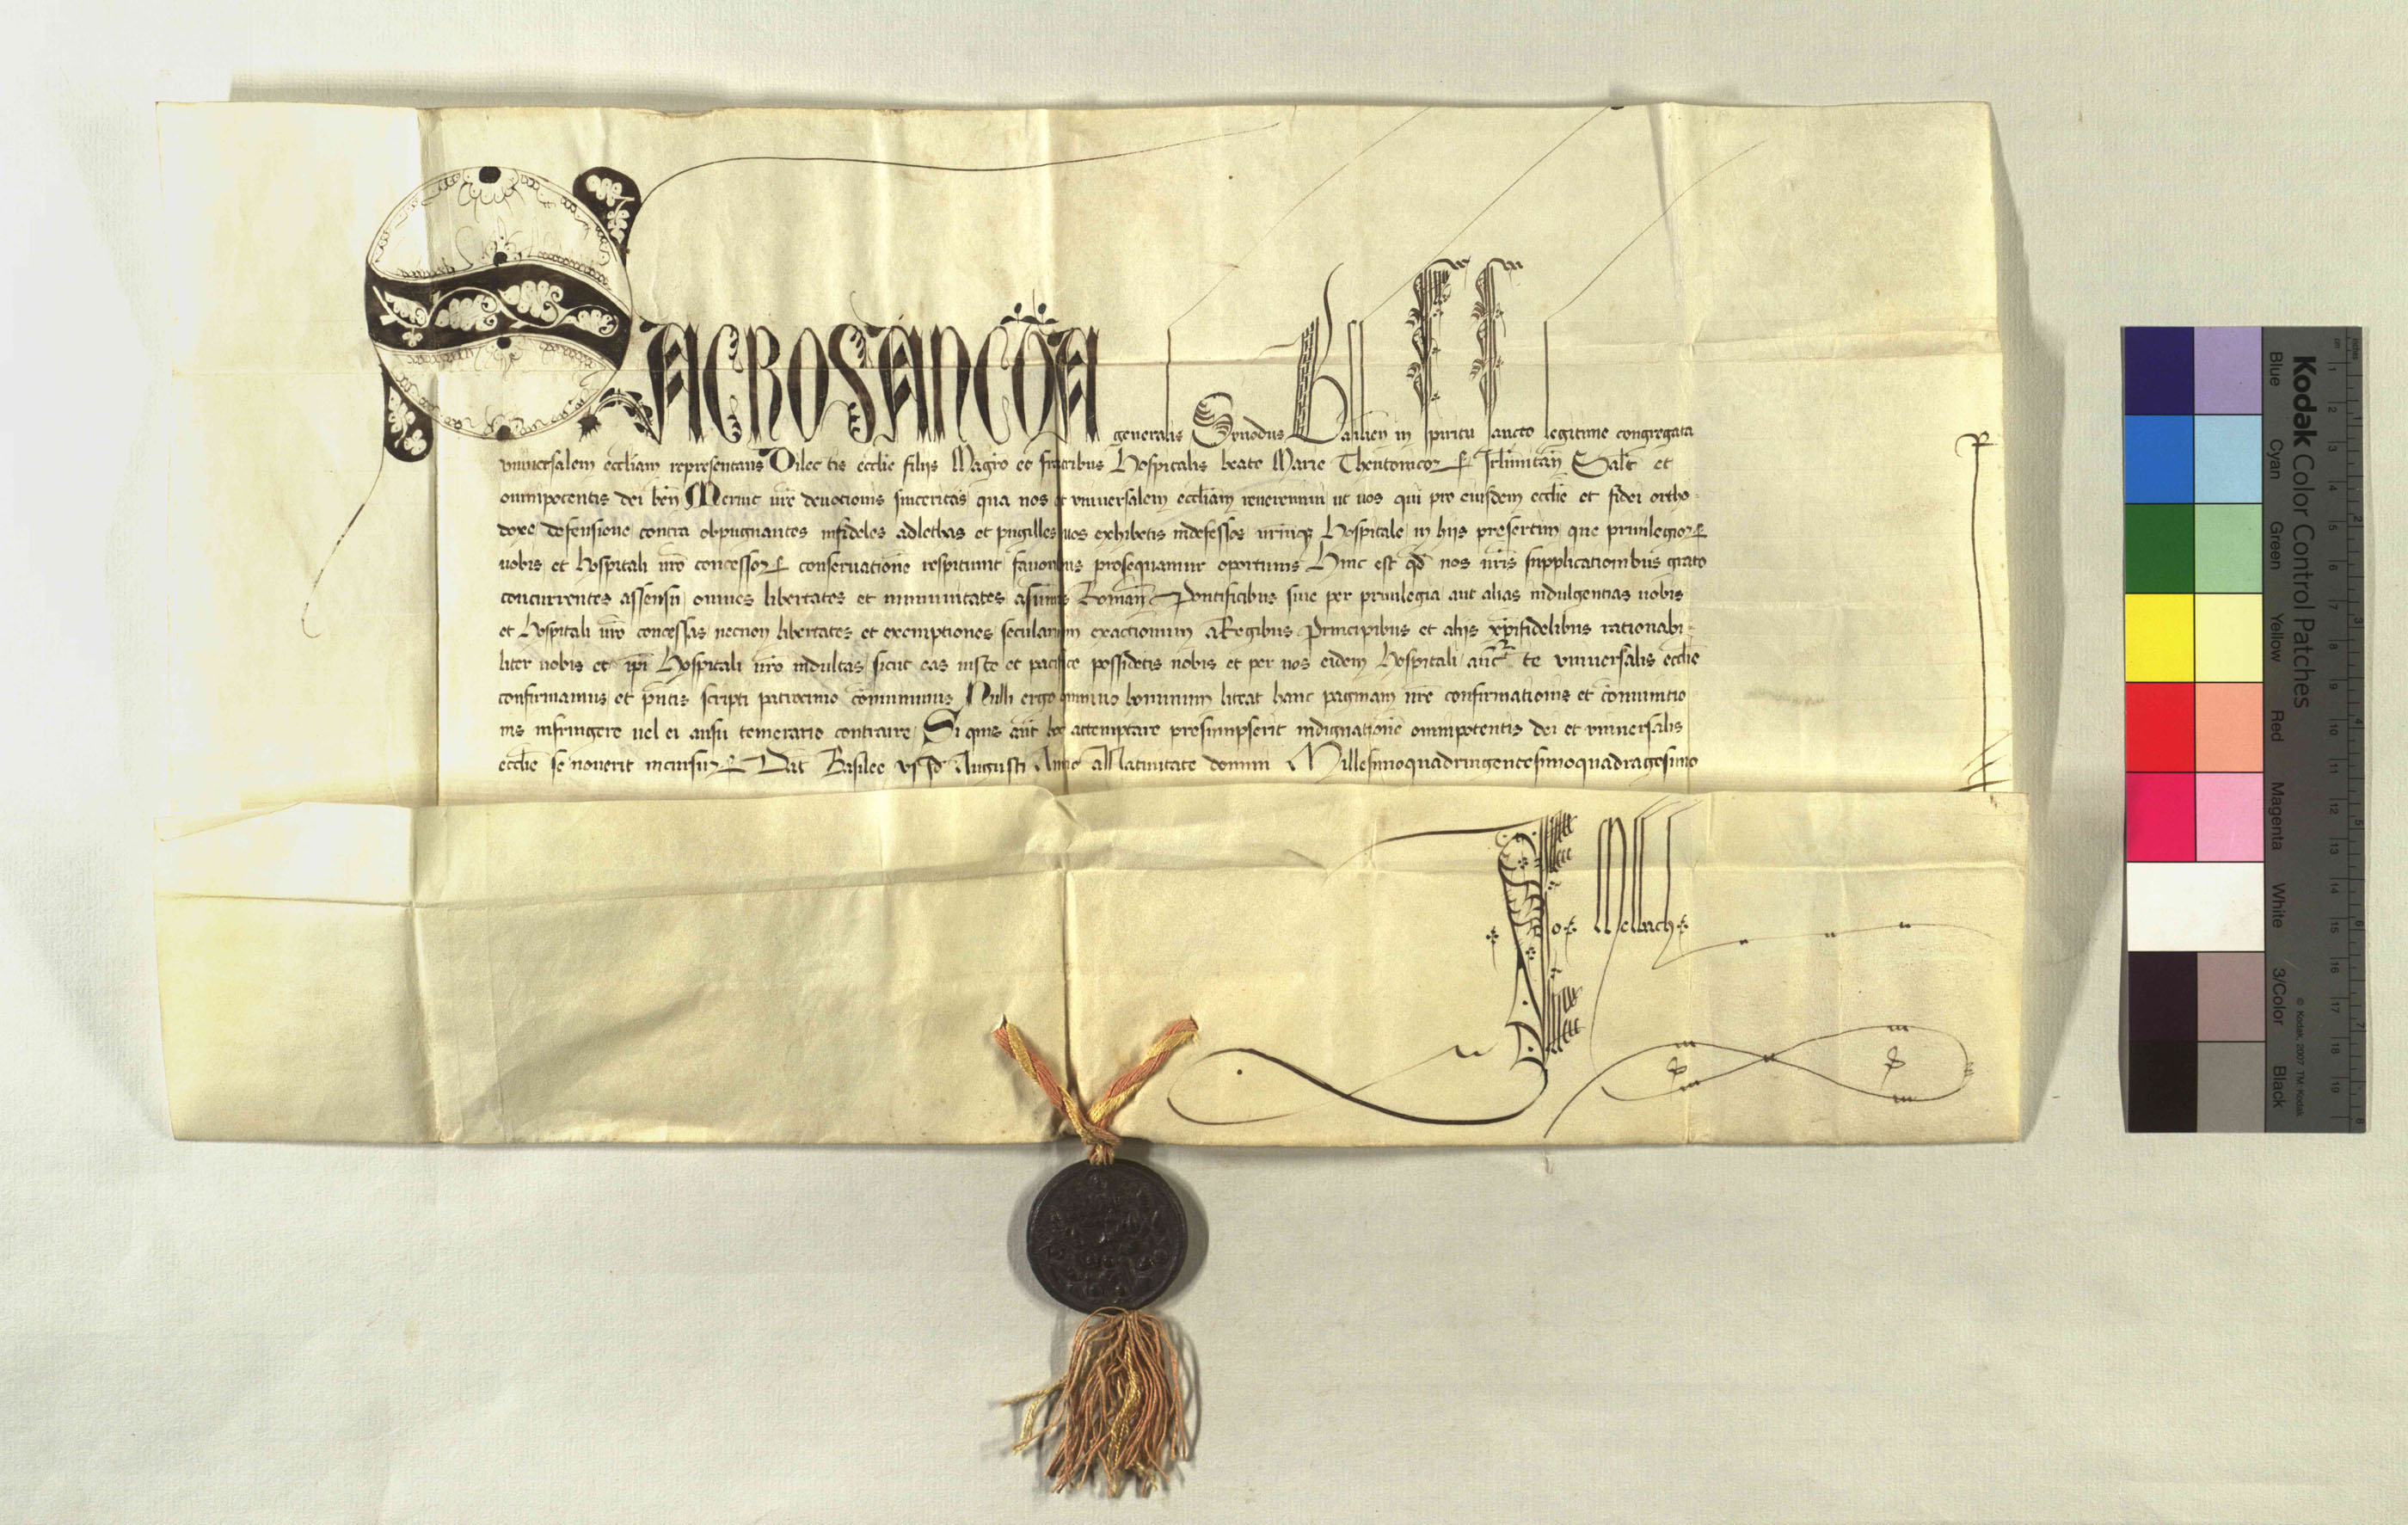 SACROSANCTA generalis Synodus Basilien in spiritu sancto legitime congregata
vniuersalem eccliam representans Dilectis ecclie filijs Magro et fratribus Hospitalis beate Marie Theutonicoꝝ Jrlimitan Salt et
omnipotentis dei ben Meruit vre deuotionis sinceritas qua nos et vniuersalem eccliam reueremini ut uos qui pro eiusdem ecclie et fidei ortho-
doxe defensione contra obpugnantes infideles adlethas et pugilles uos exhibetis indefessos urumqꝫ Hospitale in hijs presertim que priuilegioꝝ
uobis et Hospitali uro concessoꝝ conseruatione respiciunt fauoribus prosequamur oportunis Hinc est qd nos uris supplicationibus grato
concurrentes assensu omnes libertates et immunitates a summis Roman Pontificibus siue per priuilegia aut alias indulgentias uobis
et Hospitali uro concessas necnon libertates et exemptiones secularium exactionum a Regibus Principibus et alijs xpifidelibus rationabi-
liter uobis et ipi Hospitali uro indultas sicut eas iuste et pacifice possidetis uobis et per uos eidem Hospitali aucte vniuersalis ecclie
confirmamus et pntis scripti patrocinio comunimus Nulli ergo omnino hominum liceat hanc paginam nre confirmationis et comunitio
nis infringere uel ei ausu temerario contraire Si quis aut hoc attemptare presumpserit indignatione omnipotentis dei et vniuersalis
ecclie se nouerit incursuꝝ Dat Basilee Augusti Anno a Natiuitate domini Millesimoquadringentesimoquadragesimo
Jo Melbach
Kodak Color Control Patches
Blue Cyan Green Yellow Red Magenta White 3/Color Black
© Kodak, 2007 TM: Kodak